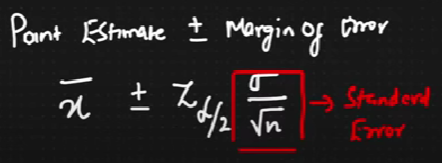 Point Estimate ± Margin of Error
x̄ ± Z α/2 σ/√n → Standerd
Error